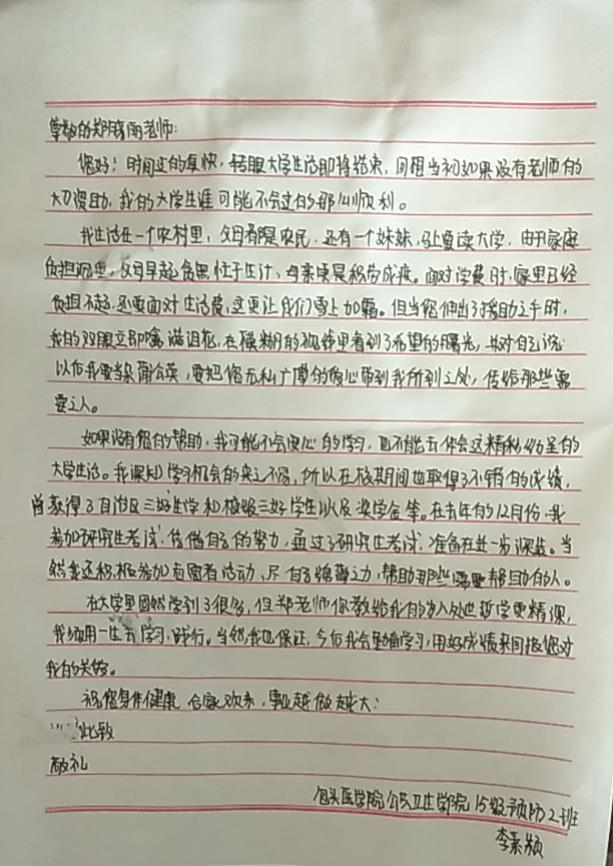 尊敬的郑腾雨老师:
您好!时间过的真快,转眼大学生活即将结束,回想当初如果没有老师的
大力资助,我的大学生涯可能不会过的那么顺利。
我生活在一个农村里,父母都是农民,还有一个妹妹,马上要读大学,由于家庭
负担沉重,父母早起贪黑忙于生计,母亲更是积劳成疾。面对学费时,家里已经
负担不起,还要面对生活费,这更让我们雪上加霜。但当您伸出了援助之手时,
我的双眼立即噙满泪花,在模糊的视线里看到了希望的曙光,并对自己说
以后我要当朵蒲公英,要把您无私广博的爱心带到我所到之处,传给那些需
要之人。
如果没有您的帮助,我可能不会安心的学习,更不能去体会这精彩纷呈的
大学生活。我深知学习机会的来之不易,所以在校期间也取得了不错的成绩,
曾获得了自治区三好学生和校级三好学生以及奖学金等。在去年的12月份,我
参加研究生考试,凭借自己的努力,通过了研究生考试,准备在进一步深造。当
然我还积极参加志愿者活动,尽自己绵薄之力,帮助那些需要帮助的人。
在大学里固然学到了很多,但郑老师你教给我的为人处世哲学更精深,
我须用一生去学习,践行。当然我也保证,今后我会勤奋学习,用好成绩来回报您对
我的关怀。
祝您身体健康 合家欢乐,事业越做越大!
此致
敬礼
包头医学院公共卫生学院15级预防2班
李素颖